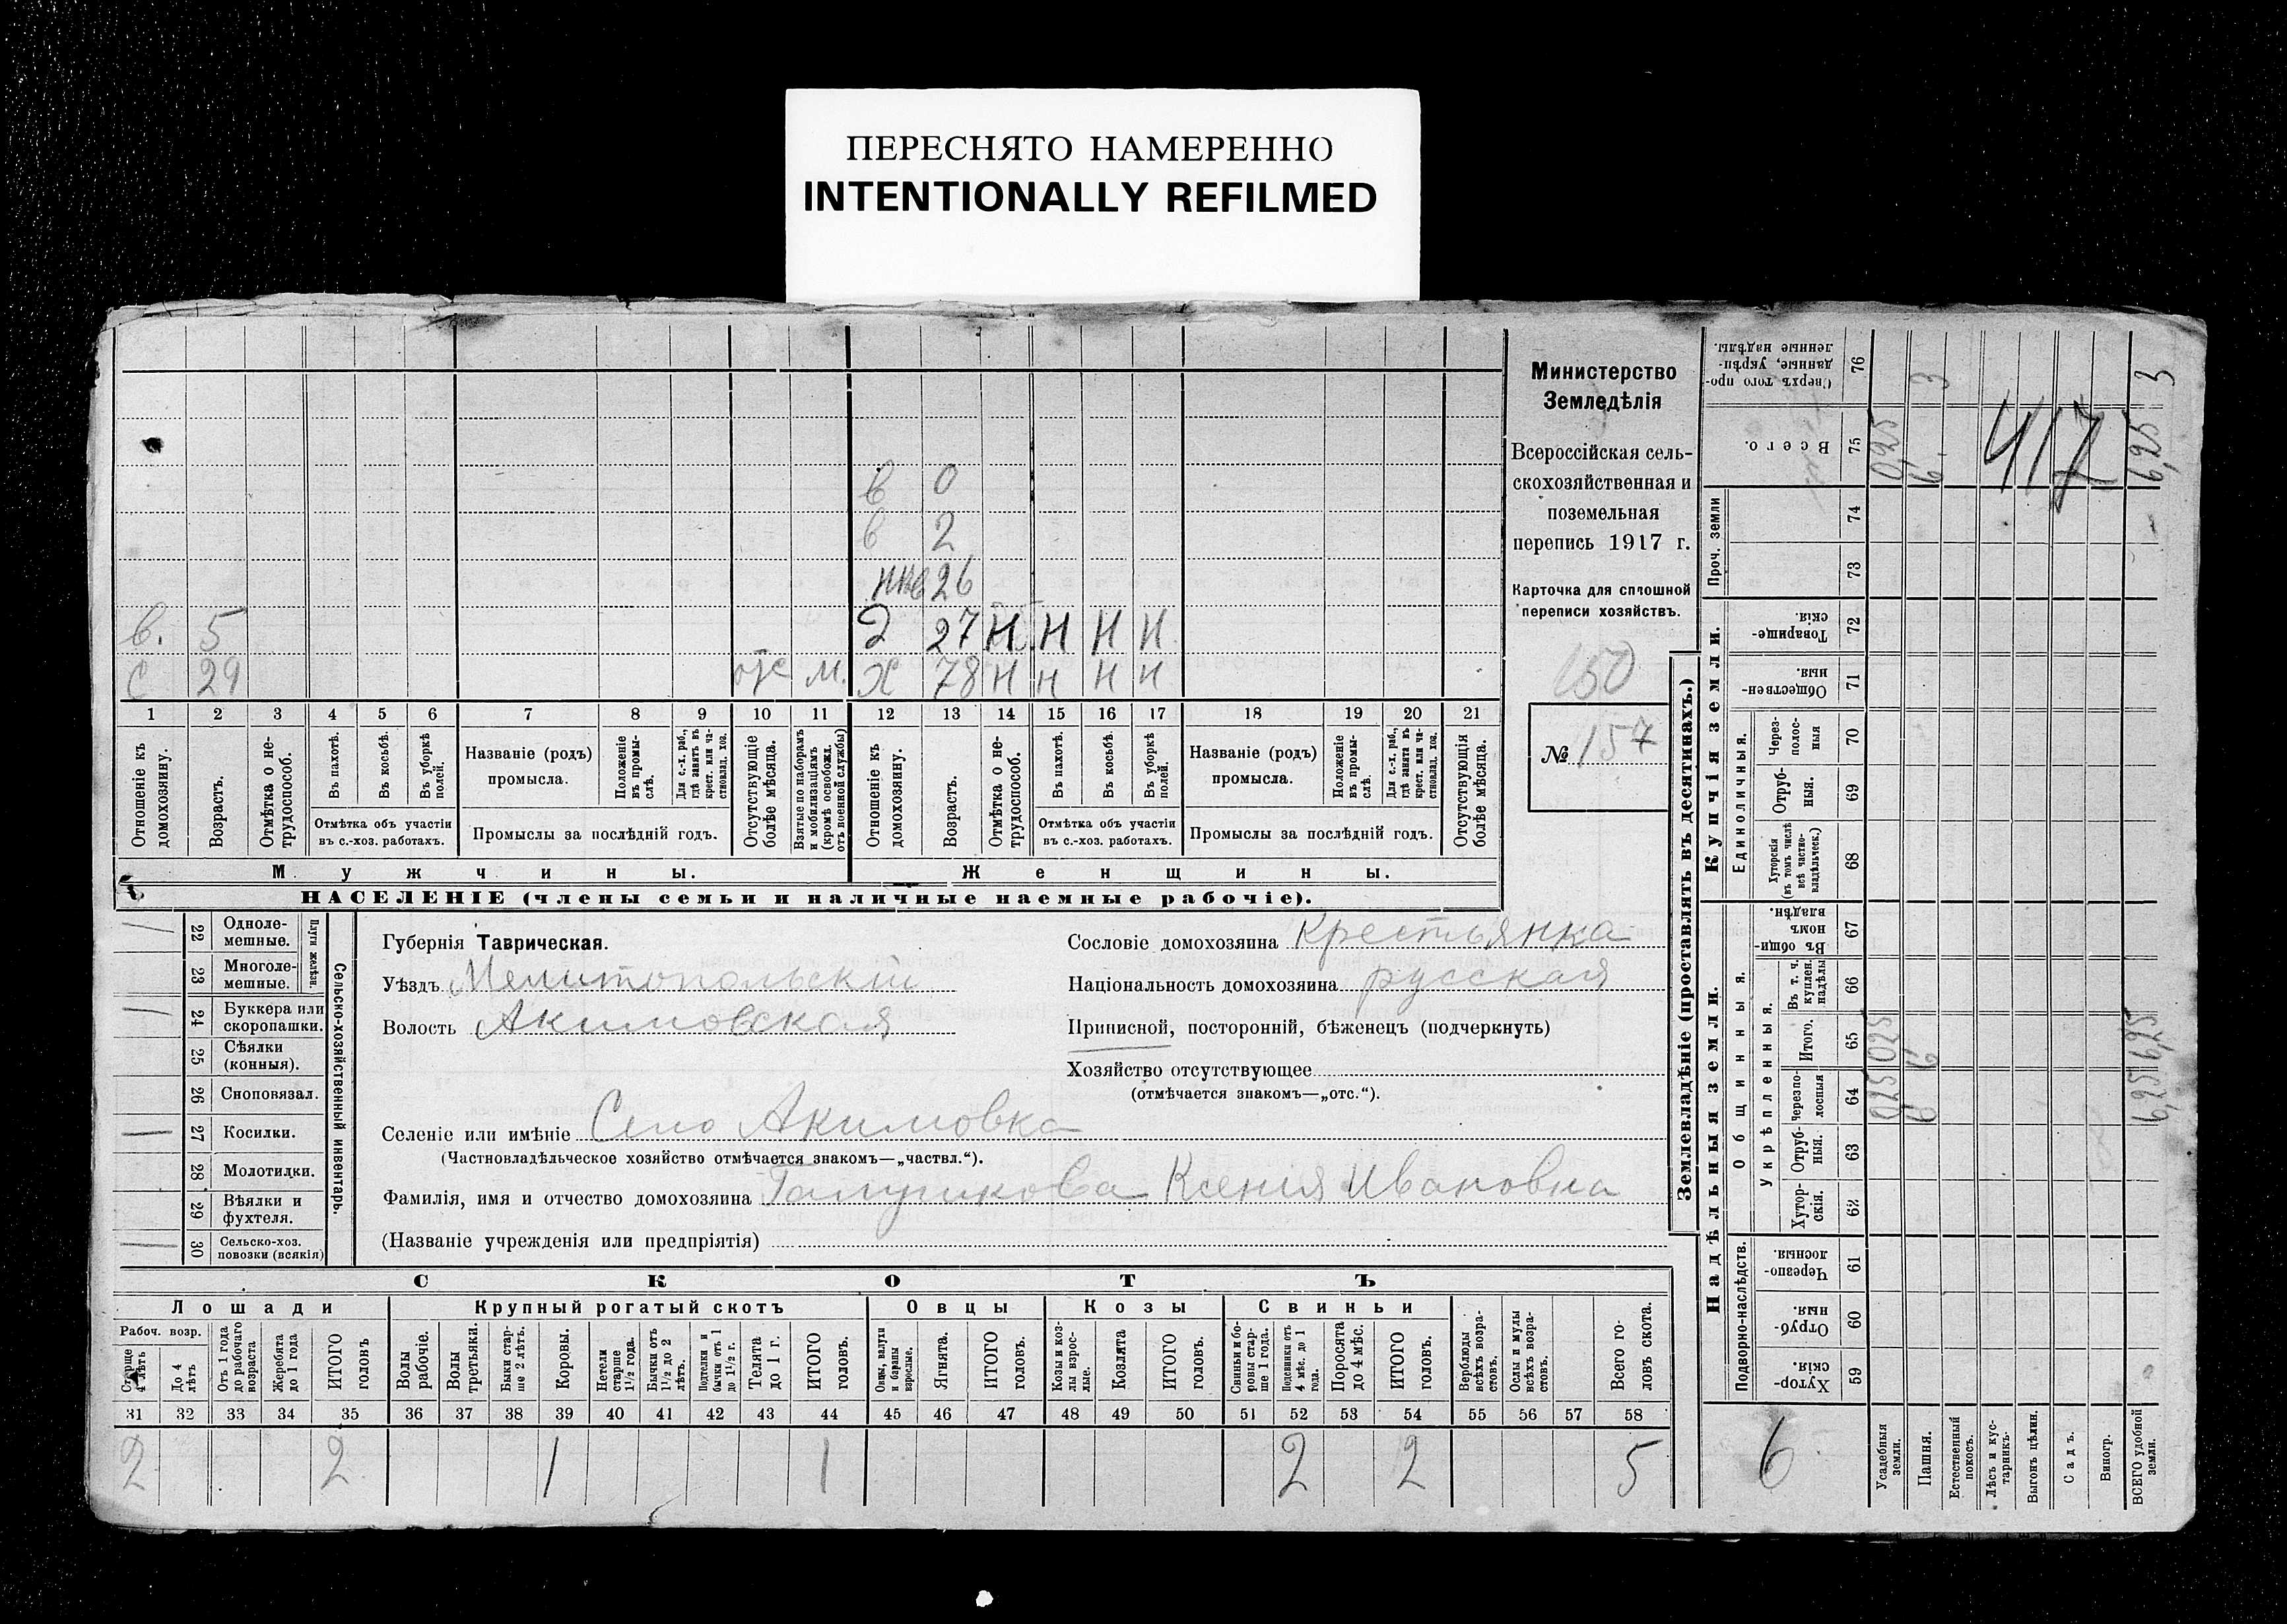 ПЕРЕСНЯТО НАМЕРЕННО
INTENTIONALLY REFILMED
Министерство
Земледѣлія
Всероссійская сель-
скохозяйственная и
поземельная
перепись 1917 г.
Карточка для сплошной
переписи хозяйствъ.
150
№ 157
в 0
в 2
26
в. 5
27 Н Н Н Н
с 29 отс м. Х 78 Н Н Н Н
1 2 3 4 5 6 7 8 9 10 11 12 13 14 15 16 17 18 19 20 21
Отношеніе къ домохозяину.
Возрастъ.
Отмѣтка о не-трудоспособ.
Въ пахотѣ.
Въ косьбѣ.
Въ уборкѣ полей.
Отмѣтка объ участіи
въ с.-хоз. работахъ.
Названіе (родъ)
промысла.
Положеніе въ промы-слѣ.
Для с.-х. раб., гдѣ занятъ въ крест. или ча-стновлад. хоз.
Промыслы за послѣдній годъ.
Отсутствующіе болѣе мѣсяца.
Взятые по наборамъ и мобилизаціямъ (кромѣ освобожд. отъ военной службы)
Отношеніе къ домохозяину.
Возрастъ.
Отмѣтка о не-трудоспособ.
Въ пахотѣ.
Въ косьбѣ.
Въ уборкѣ полей.
Отмѣтка объ участіи
въ с.-хоз. работахъ.
Названіе (родъ)
промысла.
Положеніе въ промы-слѣ.
Для с.-х. раб., гдѣ занята въ крест. или ча-стновлад. хоз.
Промыслы за послѣдній годъ.
Отсутствующія болѣе мѣсяца.
Мужчины.
Женщины.
НАСЕЛЕНІЕ (члены семьи и наличные наемные рабочіе).
Сельско-хозяйственный инвентарь.
Плуги желѣзн.
22 Одноле-мешные.
23 Многоле-мешные.
24 Буккера или скоропашки.
25 Сѣялки (конныя).
26 Сноповязал.
27 Косилки.
28 Молотилки.
29 Вѣялки и фухтеля.
30 Сельско-хоз. повозки (всякія)
Губернія Таврическая.
Уѣздъ Мелитопольскій
Волость Акимовская
Сословіе домохозяина крестьянка
Національность домохозяина русская
Приписной, посторонній, бѣженецъ (подчеркнуть)
Хозяйство отсутствующее
(отмѣчается знакомъ—„отс.“).
Селеніе или имѣніе Село Акимовка
(Частновладѣльческое хозяйство отмѣчается знакомъ—„частвл.“).
Фамилія, имя и отчество домохозяина Ксенія Ивановна
(Названіе учрежденія или предпріятія)
СКОТЪ
Лошади
Крупный рогатый скотъ
Овцы
Козы
Свиньи
Рабоч. возр.
Старше 4 лѣтъ
До 4 лѣтъ
Отъ 1 года до рабочаго возраста
Жеребята до 1 года
ИТОГО головъ
Волы рабочіе.
Волы третьяки.
Быки стар-ше 2 лѣтъ.
Коровы.
Нетели старше 1½ года.
Бычки отъ 1½ до 2 лѣтъ.
Подтелки и бычки отъ 1 до 1½ г.
Телята до 1 г.
ИТОГО головъ.
Овцы, валухи и бараны взрослые.
Ягнята.
ИТОГО головъ.
Козы и коз-лы взрос-лые.
Козлята
ИТОГО головъ.
Свиньи и бо-ровы стар-ше 1 года.
Подсвинки отъ 4 мѣс. до 1 года.
Поросята до 4 мѣс.
ИТОГО головъ.
Верблюды всѣхъ возра-стовъ.
Ослы и мулы всѣхъ возра-стовъ.
Всего го-ловъ скота.
31 32 33 34 35 36 37 38 39 40 41 42 43 44 45 46 47 48 49 50 51 52 53 54 55 56 57 58
2 2 1 1 2 2 5
Землевладѣніе (проставлять въ десятинахъ.)
Надѣльныя земли.
Купчія земли.
Проч. земли
Подворно-наслѣдств.
Общинныя.
Укрѣпленныя.
Единоличныя.
Хутор-скія. 59
Отруб-ныя. 60
Черезпо-лосныя 61
Хутор-скія. 62
Отруб-ныя. 63
Черезпо-лосныя 64
Итого. 65
Въ т. ч. куплен. надѣлы 66
Въ общин-номъ владѣн. 67
Хуторскія (въ томъ числѣ всѣ частно-владѣльческ.) 68
Отруб-ныя. 69
Через-полос-ныя 70
Обществен-ныя. 71
Товарище-скія. 72
73
74
Всего. 75
Сверхъ того про-данные, укрѣп-ленные надѣлы. 76
6
Усадебныя земли. 0,25 0,25 0,25
Пашня. 6 6 6. 3
Естественный покосъ.
Лѣсъ и кус-тарникъ.
Выгонъ цѣлин.
Садъ.
Виногр.
ВСЕГО удобной земли. 6,25 6,25 6,25 3
417